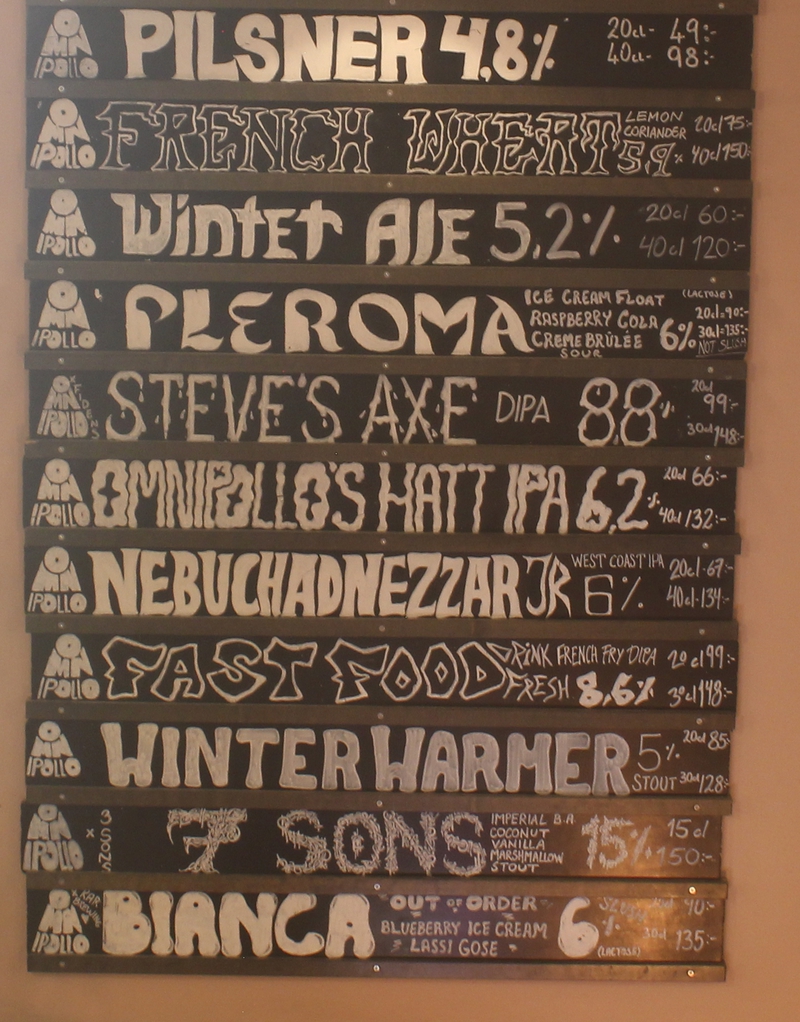 OMNIPOLLO PILSNER 4,8% 20cl- 49:-
40cl- 98:-
OMNIPOLLO FRENCH WHEAT LEMON CORIANDER 5,9% 20cl/75:-
40cl/150:-
OMNIPOLLO Winter Ale 5,2% 20cl 60:-
40cl 120:-
OMNIPOLLO PLEROMA ICE CREAM FLOAT (LACTOSE)
RASPBERRY COLA 6% 20cl=90:-
CREME BRÛLÉE 30cl=135:-
SOUR NOT SLUSH
OMNIPOLLO STEVE'S AXE DIPA 8,8% 20cl 99:-
30cl 148:-
OMNIPOLLO OMNIPOLLO'S HATT IPA 6,2% 20cl 66:-
40cl 132:-
OMNIPOLLO NEBUCHADNEZZAR JR WEST COAST IPA 6% 20cl-67:-
40cl-134:-
OMNIPOLLO FAST FOOD DRINK FRENCH FRY DIPA 20cl 99:-
FRESH 8,6% 30cl 148:-
OMNIPOLLO WINTER WARMER 5% 20cl 85:-
STOUT 30cl 128:-
OMNIPOLLO x 3 SONS 7 SONS IMPERIAL B.A
COCONUT
VANILLA
MARSHMALLOW
STOUT
15% 15cl
150:-
OMNIPOLLO BIANCA OUT OF ORDER
BLUEBERRY ICE CREAM
LASSI GOSE
6% SLUSH 90:-
30cl 135:-
(LACTOSE)